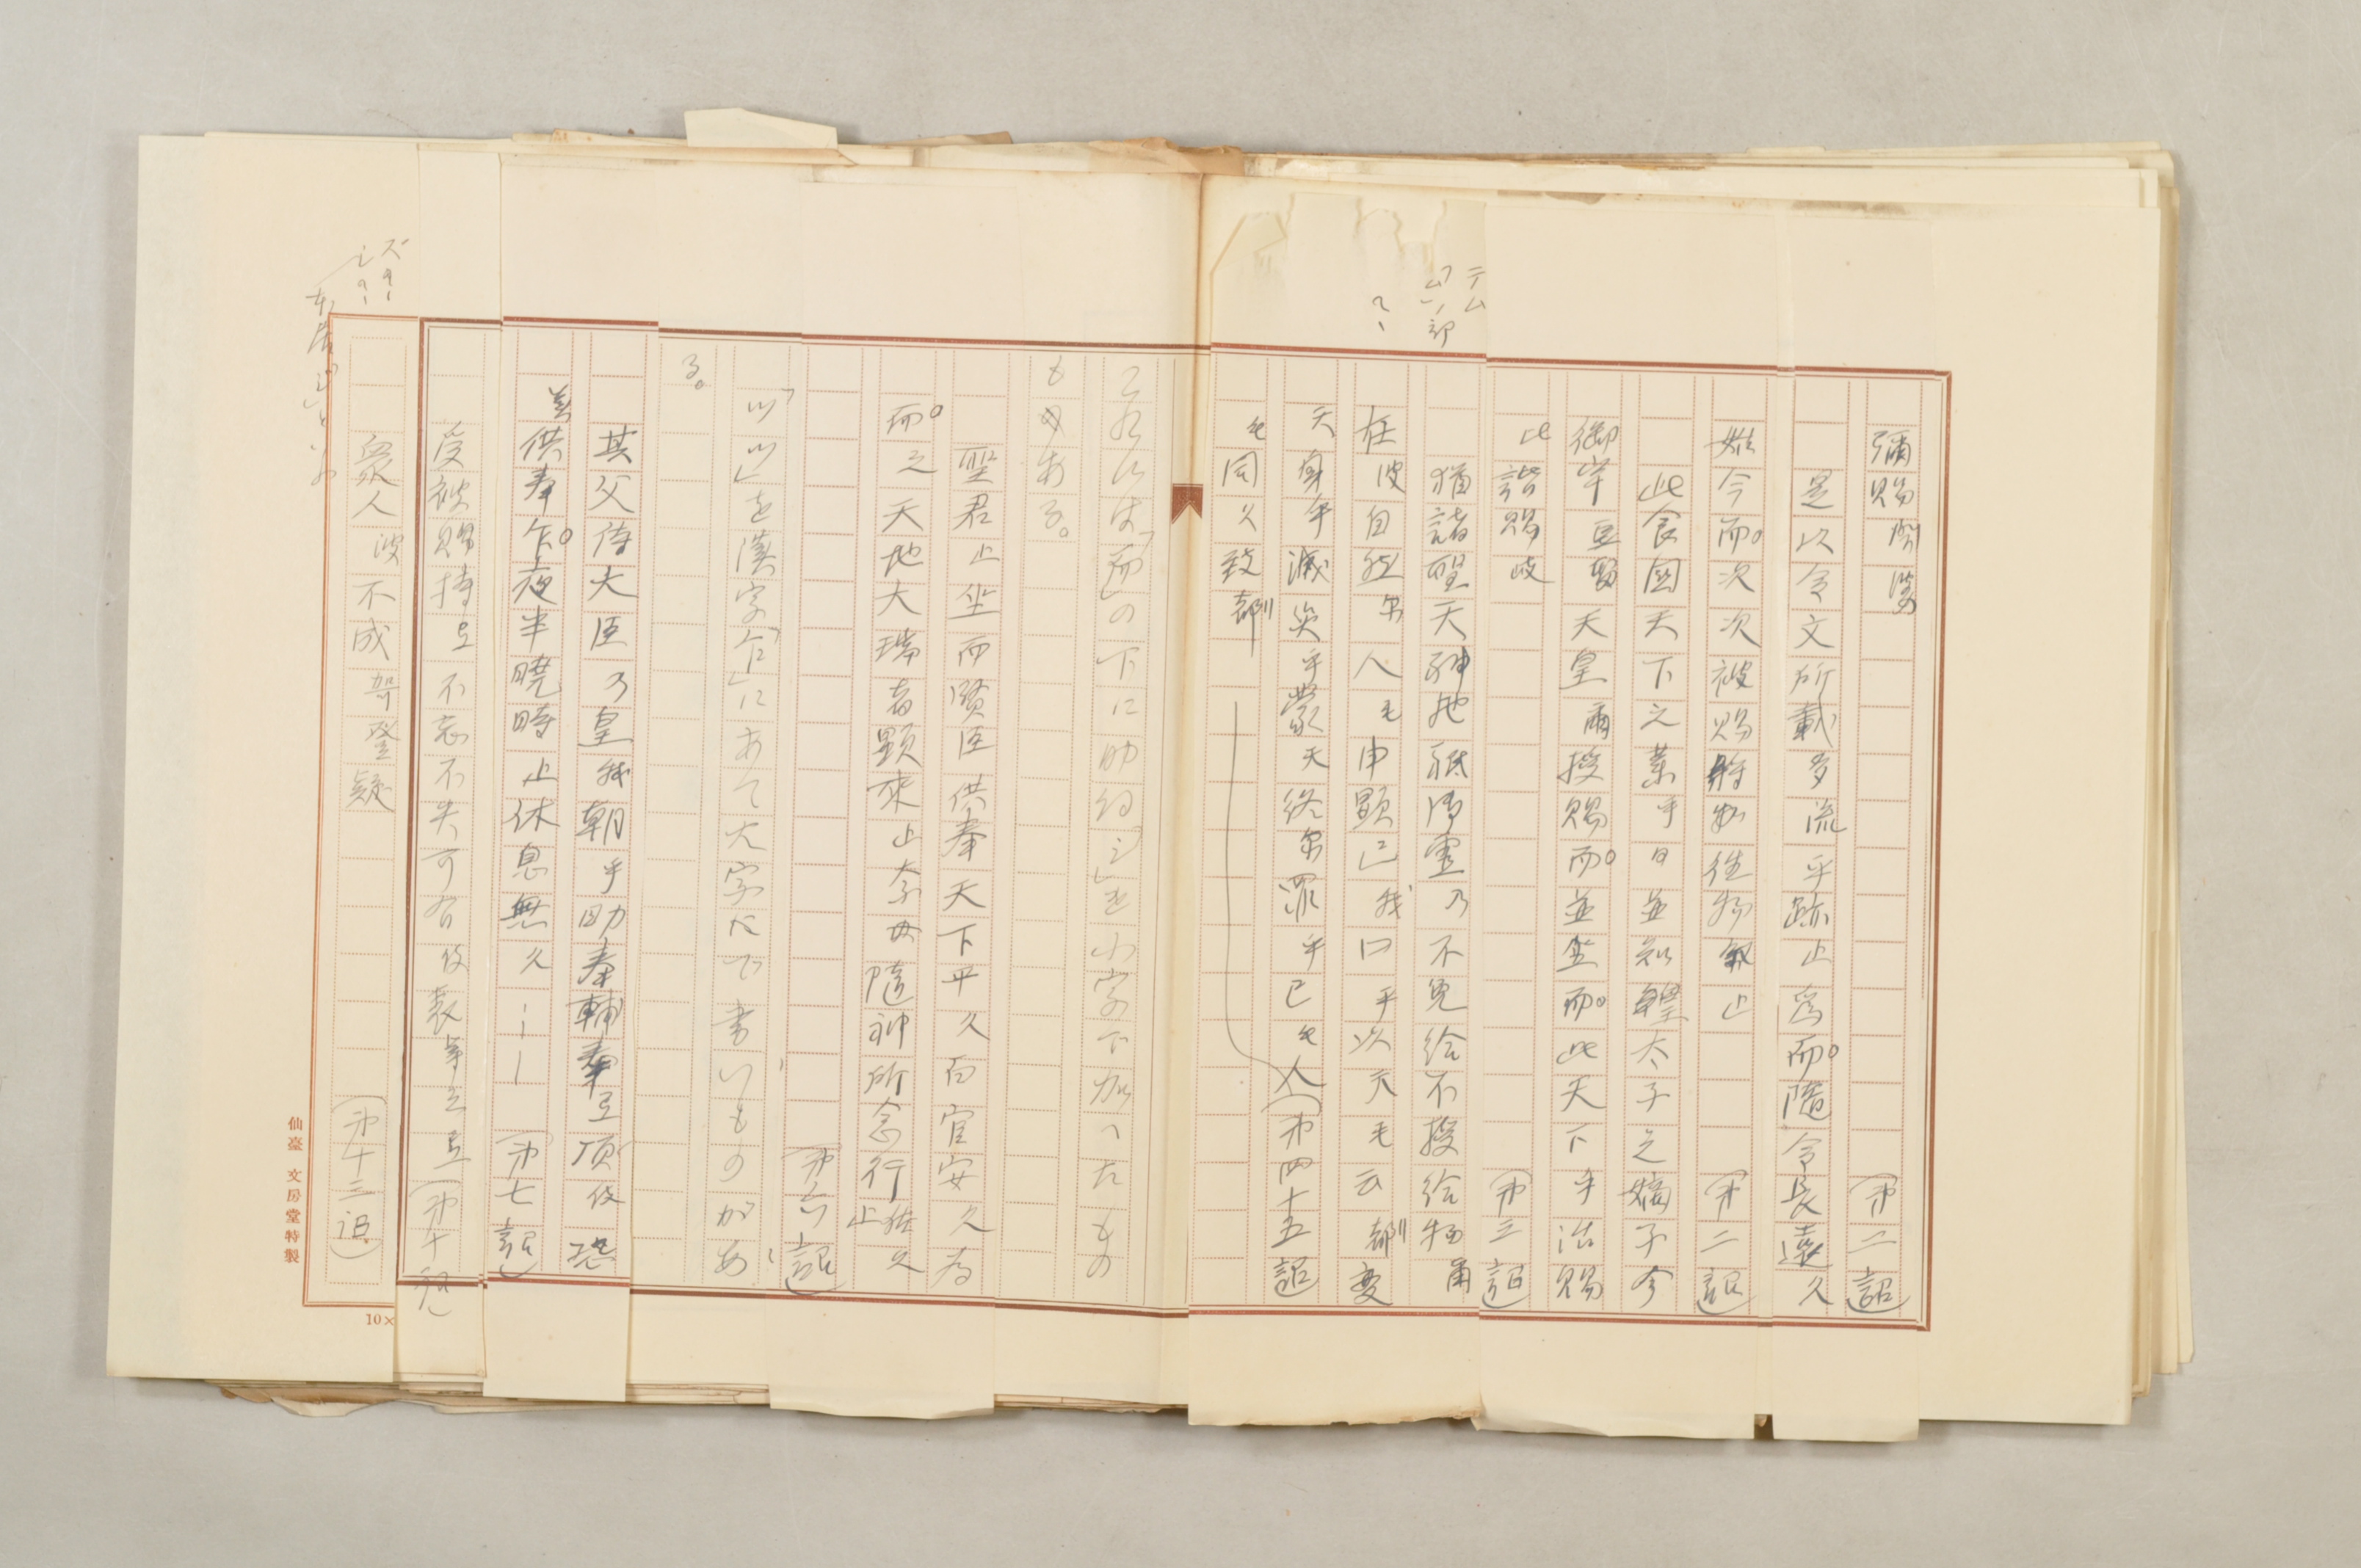 彌賜閇婆　（第二詔）
是以令文所載多流乎跡止爲而。隨令長遠久
始今而。次次被賜將物佐物敍止　（第二詔）
此食國天下之業乎日並知皇太子之嫡子今
御宇豆留天皇爾授賜而。並坐而。此天下乎治賜
比諧賜岐　（第三詔）
猶諸聖天神地祇御靈乃不免給不授給物爾
在波自然尓人毛申顯己我口乎以天毛云都變
天身乎滅災乎蒙天終尓罪乎己毛人（第四十五詔）
毛同久致都
テム
「ム」ノ部
これらは「而」の下に助詞「之」を小字で加へたもの
もある。
聖君止坐而賢臣供奉天下平久百官安久爲
而。之天地大瑞者顯來止奈母隨神所念行佐久止　（第六詔）
「ツツ」を漢字「乍」にあて大字にて書いものがあ
る。
其父侍大臣乃皇我朝乎助奉輔奉弖頂伎恐
美供奉乍。夜半曉時止休息無久……（第七詔）
受被賜持弖不忘不失可有伎表等之弖（第十詔）
衆人波不成哿登疑　（第十三詔）
仙臺 文房堂特製
10×